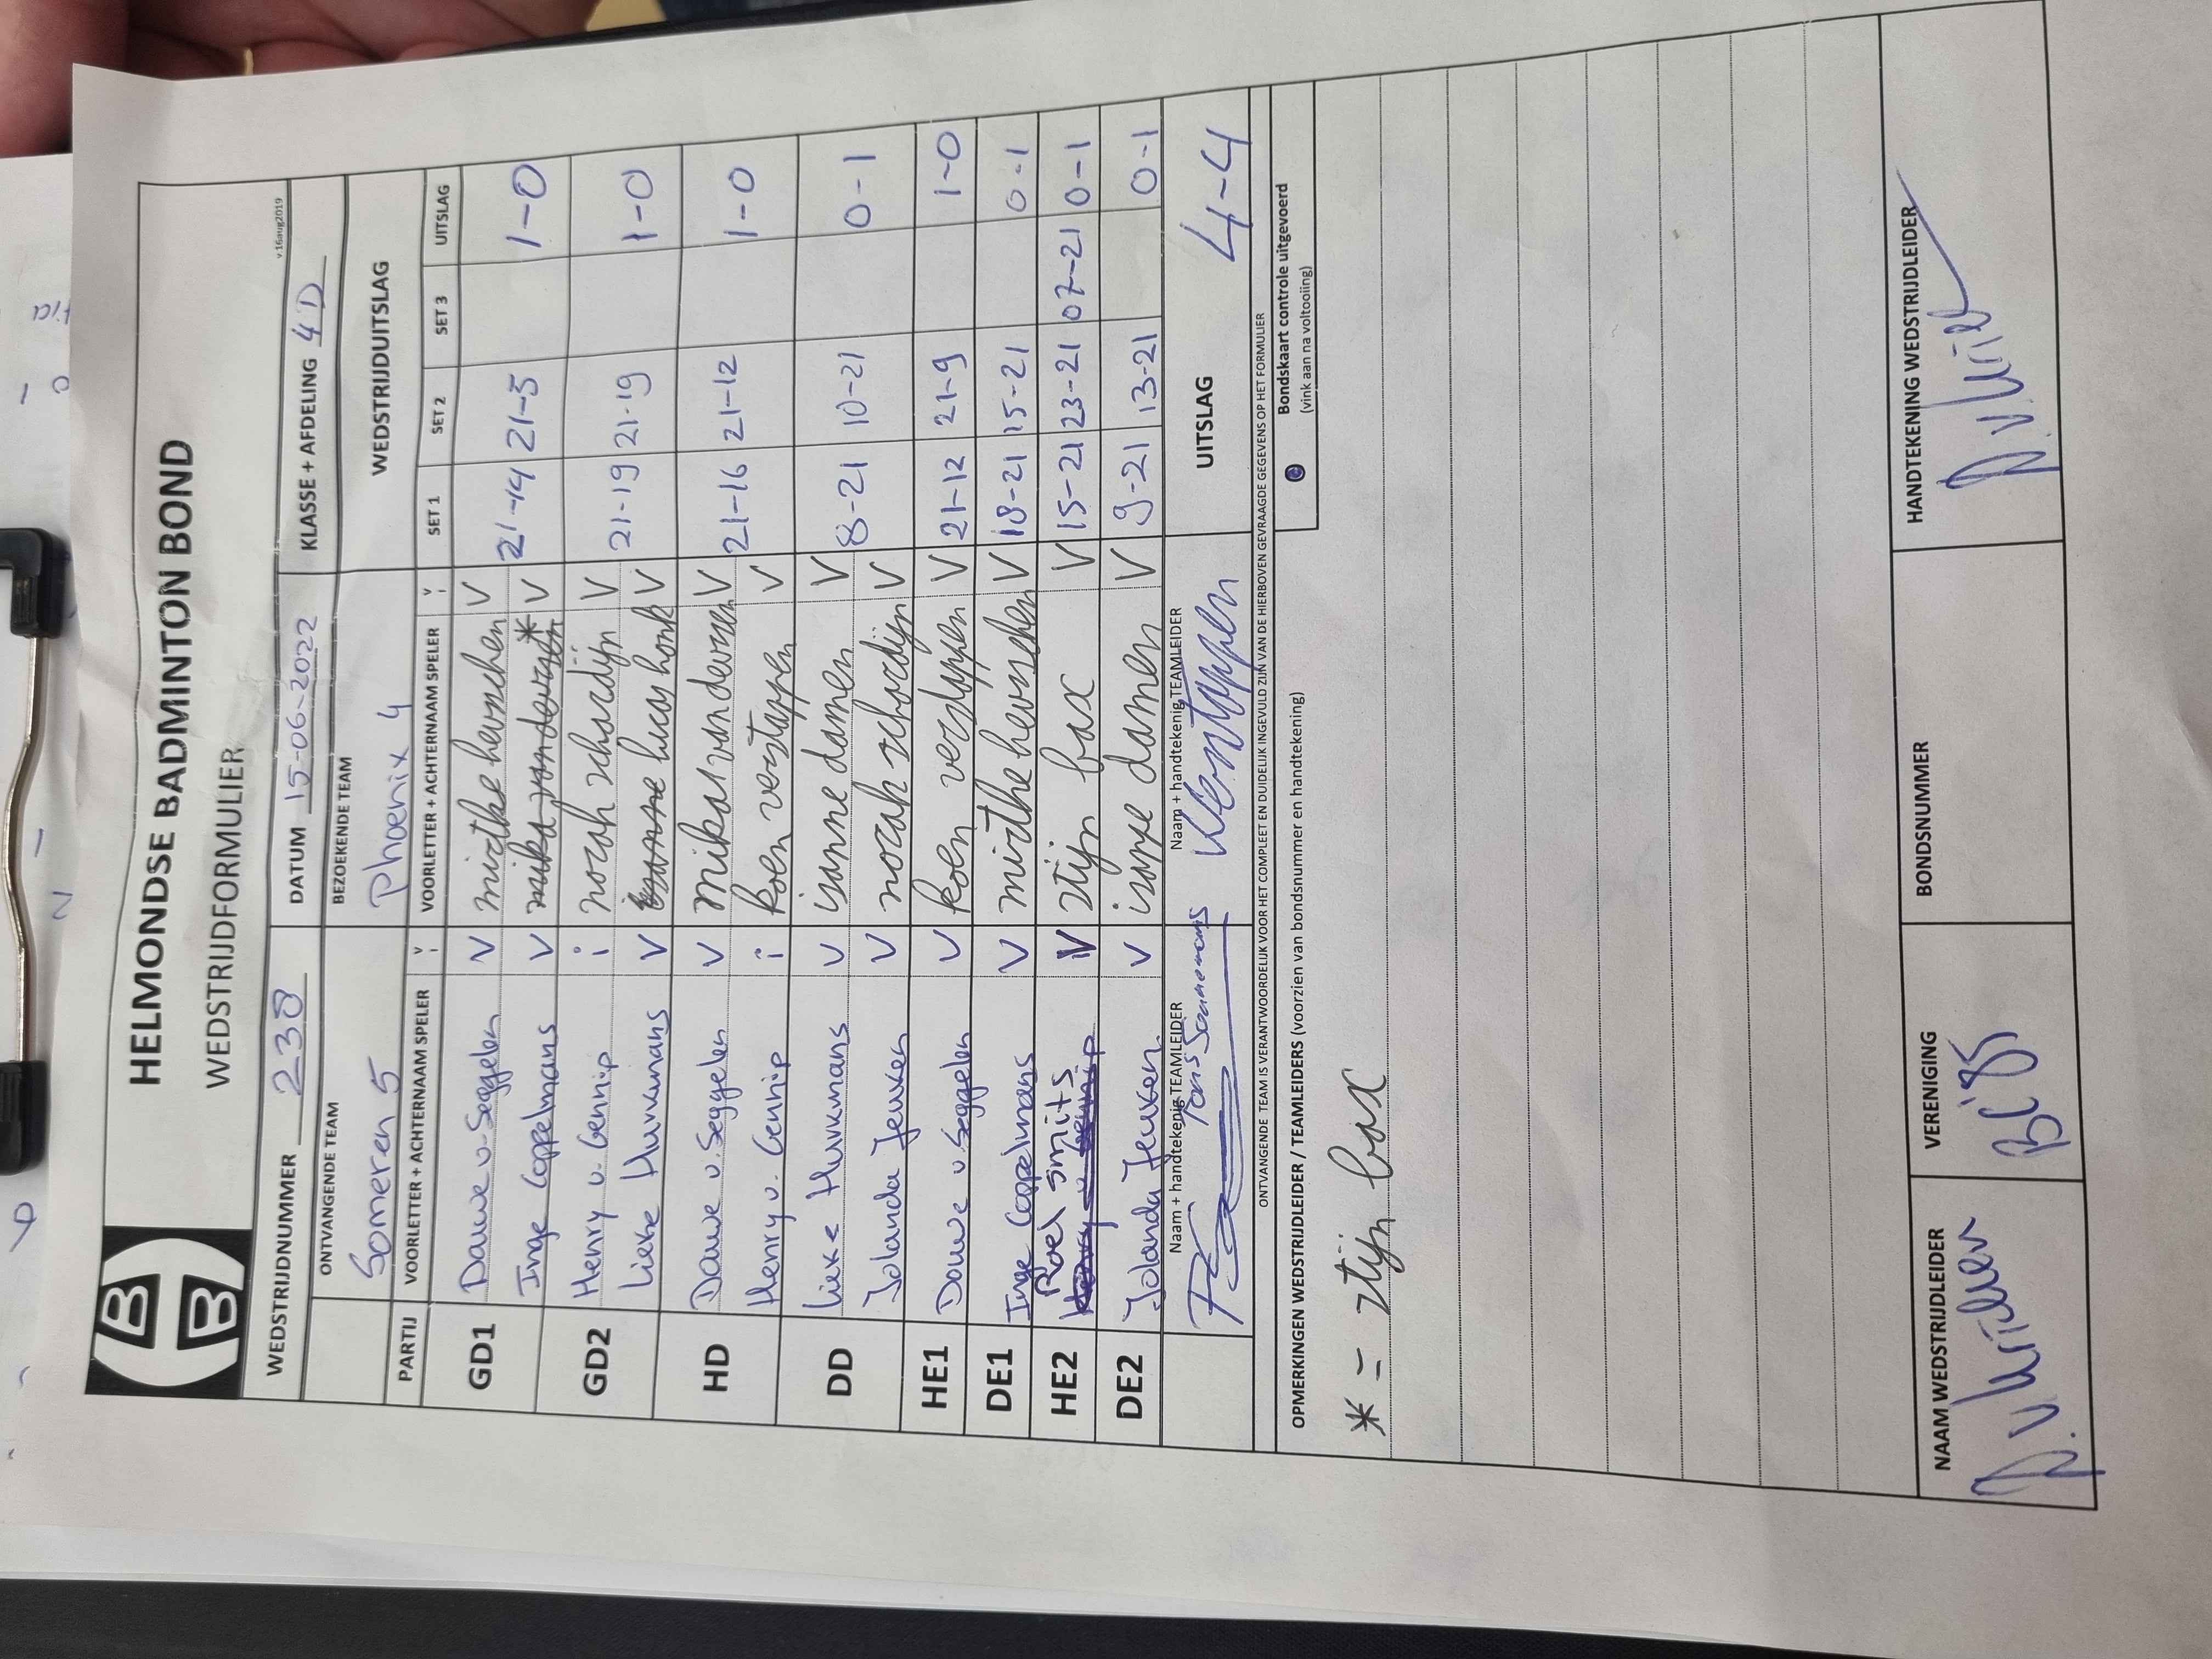 HELMONDSE BADMINTON BOND
WEDSTRIJDFORMULIER
v.16aug2019
WEDSTRIJDNUMMER 238 DATUM 15-06-2022 KLASSE + AFDELING 4D
ONTVANGENDE TEAM BEZOEKENDE TEAM WEDSTRIJDUITSLAG
Someren 5 Phoenix 4
PARTIJ VOORLETTER + ACHTERNAAM SPELER V i VOORLETTER + ACHTERNAAM SPELER V i SET 1 SET 2 SET 3 UITSLAG
GD1 Douwe v. Seggelen V mirthe heurschen V 21-14 21-5 1-0
Inge Coppelmans V mika van deursen * V
GD2 Henry v. Gennip i norah schordijn V 21-19 21-19 1-0
Lieke Hurkmans V lucas honk V
HD Douwe v. Seggelen V mikas van deursen V 21-16 21-12 1-0
Henry v. Gennip i koen verstappen V
DD Lieke Hurkmans V isanne damen V 8-21 10-21 0-1
Jolanda Jeuken V norah schordijn V
HE1 Douwe v. Seggelen V koen verstappen V 21-12 21-9 1-0
DE1 Inge Coppelmans V mirthe heurschen V 18-21 15-21 0-1
HE2 Roel Smits V stijn bax V 15-21 23-21 07-21 0-1
DE2 Jolanda Jeuken V isanne damen V 9-21 13-21 0-1
Naam + handtekenig TEAMLEIDER Naam + handtekenig TEAMLEIDER UITSLAG 4-4
Verstappen
ONTVANGENDE TEAM IS VERANTWOORDELIJK VOOR HET COMPLEET EN DUIDELIJK INGEVULD ZIJN VAN DE HIERBOVEN GEVRAAGDE GEGEVENS OP HET FORMULIER
OPMERKINGEN WEDSTRIJDLEIDER / TEAMLEIDERS (voorzien van bondsnummer en handtekening)
Bondskaart controle uitgevoerd
(vink aan na voltooiing)
* = stijn bax
NAAM WEDSTRIJDLEIDER VERENIGING BONDSNUMMER HANDTEKENING WEDSTRIJDLEIDER
BC'85